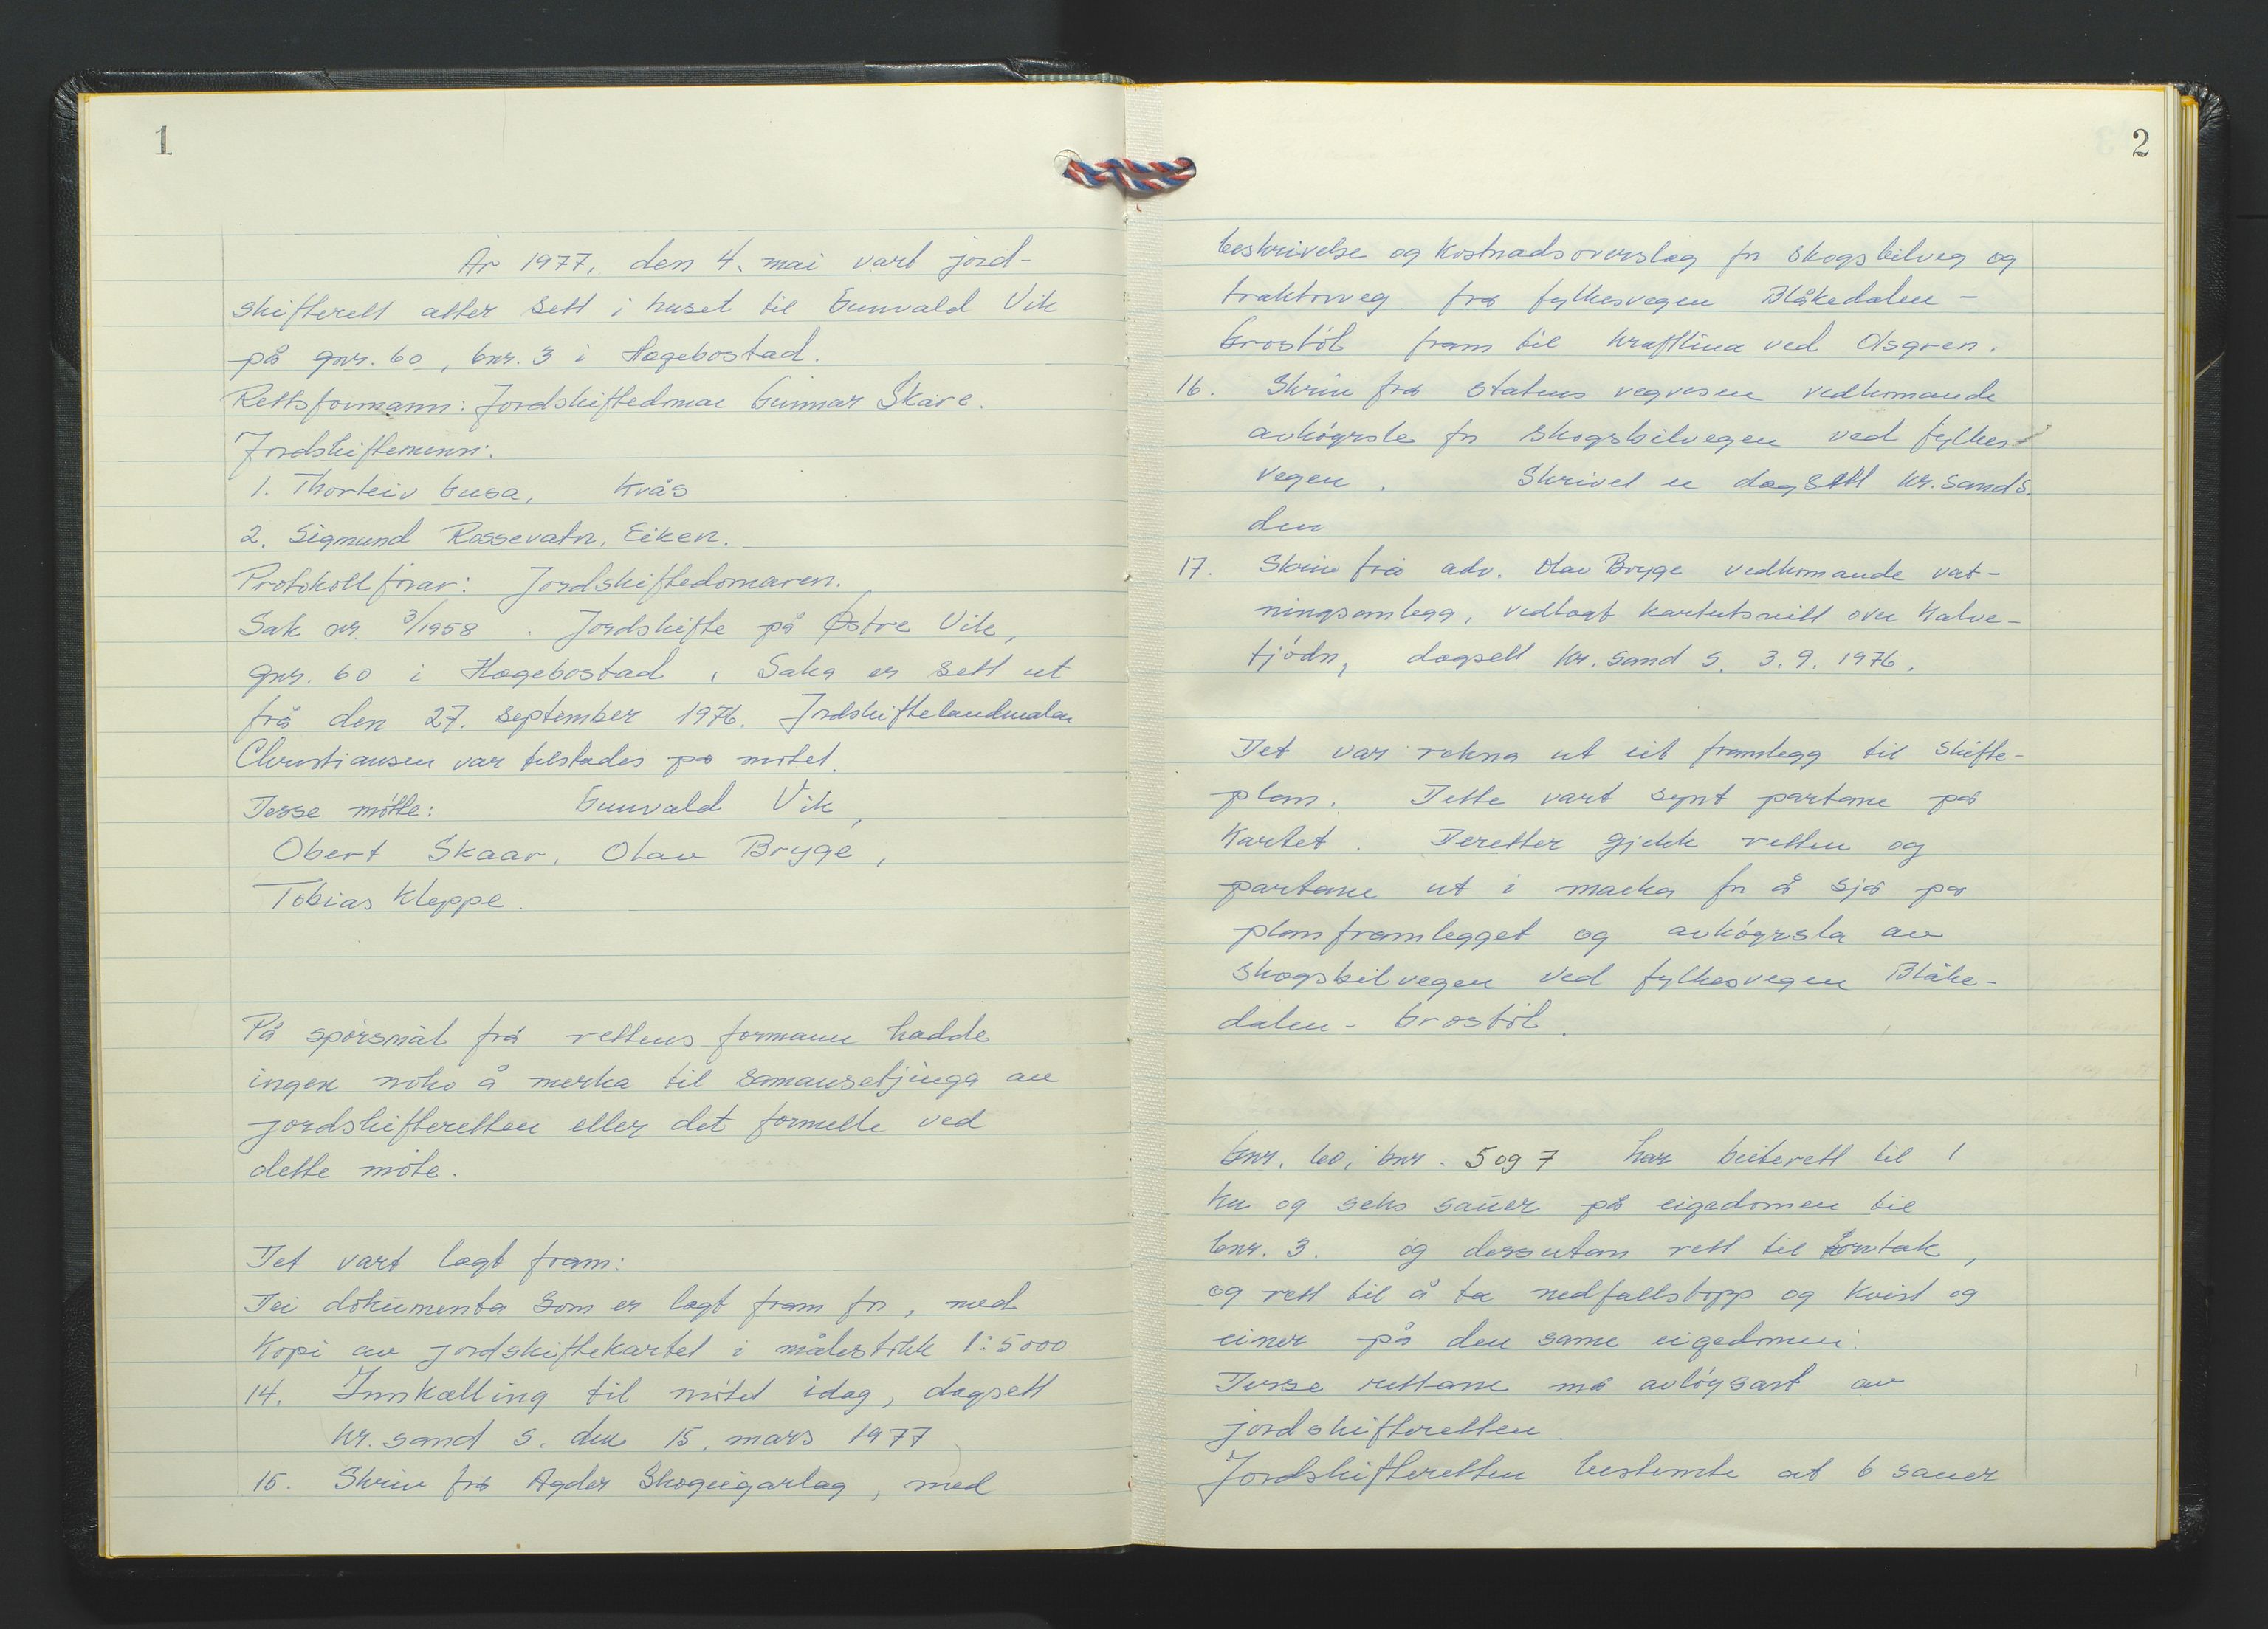 1
År 1977, den 4. mai vart jord-
skifterett atter sett i huset til Gunvald Vik
på gnr. 60, bnr. 3 i Hægebostad.
Rettsformann: Jordskiftedomar Gunnar Skåre.
Jordskiftemenn:
1. Thorleiv Gusa, Kvås
2. Sigmund Rossevatn, Eiken.
Protokollførar: Jordskiftedomaren.
Sak nr. 3/1958. Jordskifte på Østre Vik,
gnr. 60 i Hægebostad. Saka er sett ut
frå den 27. september 1976. Jordskiftelandmålar
Christiansen var tilstades på møtet.
Desse møtte: Gunvald Vik,
Obert Skaar, Olav Bryge,
Tobias Kleppe.
På spørsmål frå rettens formann hadde
ingen noko å merka til samansetjinga av
jordskifteretten eller det formelle ved
dette møte.
Det vart lagt fram:
Dei dokumenta som er lagt fram før, med
kopi av jordskiftekartet i målestokk 1:5000
14. Innkalling til møtet idag, dagsett
Kr.sand S. den 15. mars 1977
15. Skriv frå Agder Skogeigarlag, med
2
beskrivelse og kostnadsoverslag for skogsbilveg og
traktorveg frå fylkesvegen Blåkedalen -
Grostøl fram til kraftlina ved Osgren.
16. Skriv frå statens vegvesen vedkomande
avkøyrsle for skogsbilvegen ved fylkes-
vegen. Skrivet er dagsett Kr.sand S.
den
17. Skriv frå adv. Olav Bryge vedkomande vat-
ningsanlegg, vedlagt kartutsnitt over Kalve-
tjødn, dagsett Kr.sand S. 3.9.1976.
Det var rekna ut eit framlegg til skifte-
plan. Dette vart synt partane på
kartet. Deretter gjekk retten og
partane ut i marka for å sjå på
planframlegget og avkøyrsla av
skogsbilvegen ved fylkesvegen Blåke-
dalen - Grostøl.
Gnr. 60, bnr. 5 og 7 har beiterett til 1
ku og seks sauer på eigedomen til
bnr. 3. og dessutan rett til
og rett til å ta nedfallstopp og kvist og
einer på den same eigedomen.
Desse rettane må avløysast av
jordskifteretten.
Jordskifteretten bestemte at 6 sauer